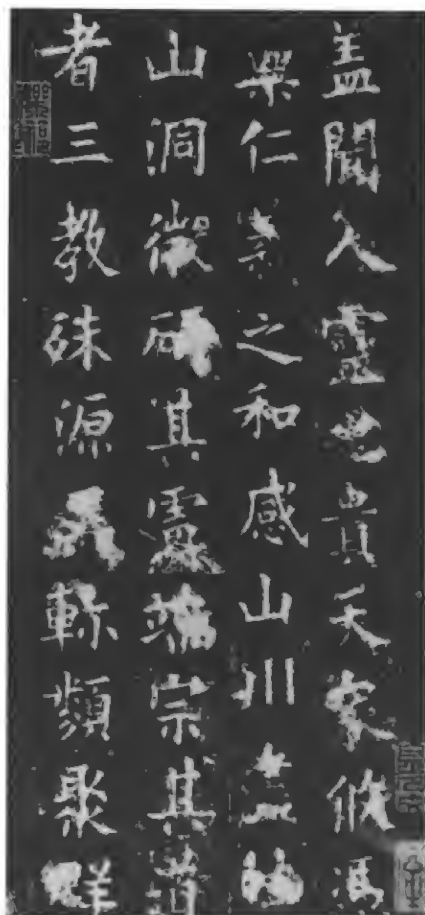 盖聞人靈貴天象攸馮
稟仁之和感山川
山洞微研其慮端宗其
者三教殊源軫類聚群